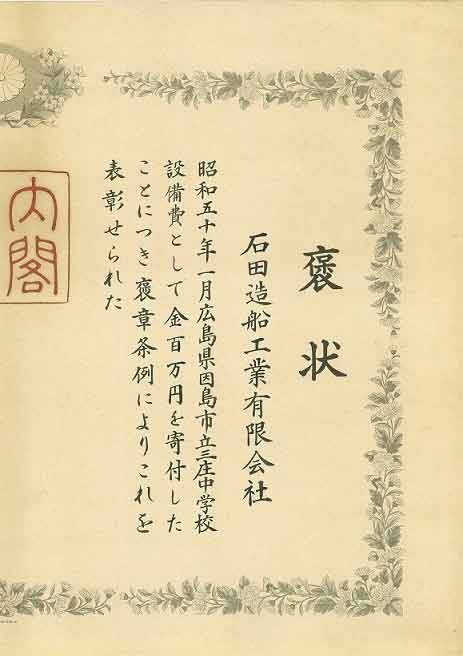 褒状
石田造船工業有限会社
昭和五十年一月広島県因島市立三庄中学校
設備費として金百万円を寄付した
ことにつき褒章条例によりこれを
表彰せられた
内閣